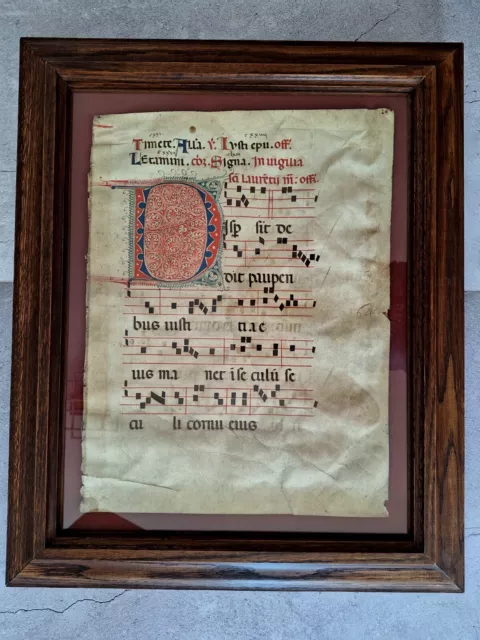 Timete. Aĩa. ℣. Iusti epũ. off.
Letamini. cõr. Signa. In uigilia
sci laurẽtii m̃. off.
Disp sit de
dit pauperi
bus iusti tia e
ius ma net ĩ se culũ se
cu li cornu eius